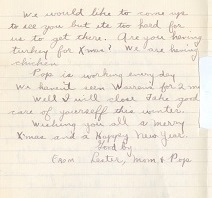 We would like to come up
to see you but its too hard for
us to get there. Are you having
turkey for Xmas? We are having
chicken
Pop is working every day
We haven't seen for 2 mo
Well I will close Take good
care of yourself this winter.
Wishing you all a merry
Xmas and a Happy New Year
Good by
From Lester, Mom & Pops